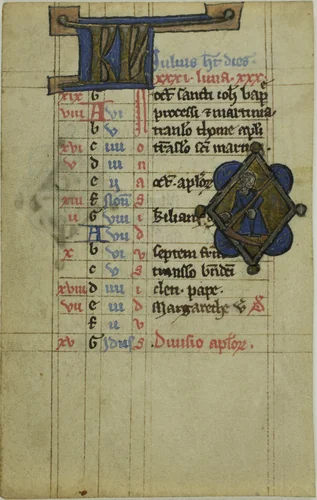 KL Iulius ht dies
xxxi. luna. xxx.
xix G Oct' sancti ioh bapt'
viii A vi processi & martinia
b v translo thome apli
xvi c iiii o translo sci marti
v d iii n
e ii a oct' aplor
xiii f Non s
ii G viii i kilian
A vii d
x b vi v septem frm
c v s translo bndci
xviii d iiii i cleti pape.
vii e iii d Margarethe v
f ii v
xv G Idus s Diuisio aplor.